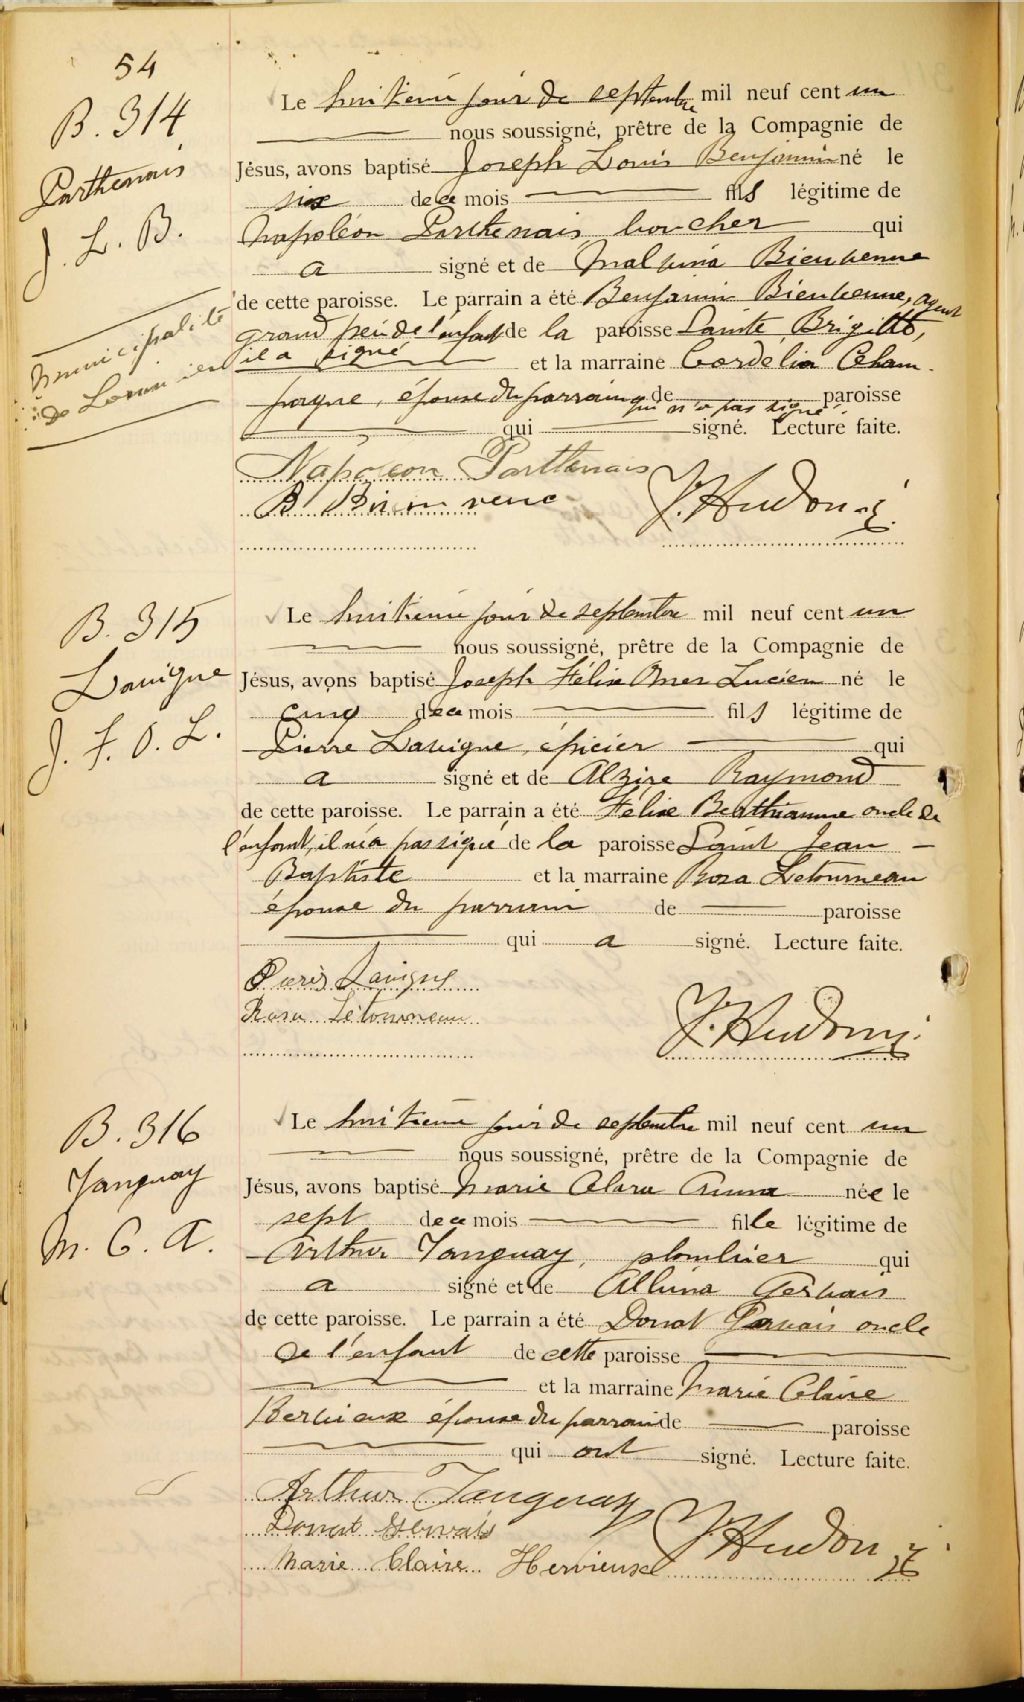 54
B. 314
Parthenais
J. L. B.
Municipalité
de Lorimier
Le huitième jour de septembre mil neuf cent un
nous soussigné, prêtre de la Compagnie de
Jésus, avons baptisé Joseph Louis Benjamin né le
six de ce mois fils légitime de
Napoléon Parthenais, boucher qui
a signé et de Malvina Bienvenue
de cette paroisse. Le parrain a été Benjamin Bienvenue, agent
grand père de l'enfant de la paroisse Sainte Brigitte,
il a signé et la marraine Cordélia Cham-
pagne, épouse du parrain de paroisse
qui n'a pas signé.
qui signé. Lecture faite.
Napoléon Parthenais
B Bienvenue
J. Hudon s.j.
B. 315
Lavigne
J. F. O. L.
Le huitième jour de septembre mil neuf cent un
nous soussigné, prêtre de la Compagnie de
Jésus, avons baptisé Joseph Félix Omer Lucien né le
cinq de ce mois fils légitime de
Pierre Lavigne, épicier qui
a signé et de Alzire Raymond
de cette paroisse. Le parrain a été Félix Berthiaume oncle de
l'enfant, il n'a pas signé de la paroisse Saint Jean -
Baptiste et la marraine Rosa Letourneau
épouse du parrain de paroisse
qui a signé. Lecture faite.
Pierre Lavigne
Rosa Létourneau
J. Hudon s.j.
B. 316
Tanguay
M. C. A.
Le huitième jour de septembre mil neuf cent un
nous soussigné, prêtre de la Compagnie de
Jésus, avons baptisé Marie Clara Anna née le
sept de ce mois fille légitime de
Arthur Tanguay, plombier qui
a signé et de Albina Gervais
de cette paroisse. Le parrain a été Donat Gervais oncle
de l'enfant de cette paroisse
et la marraine Marie Claire
Bervieux épouse du parrain de paroisse
qui ont signé. Lecture faite.
Arthur Tanguay
Donat Gervais
Marie Claire Hervieux
J Hudon sj